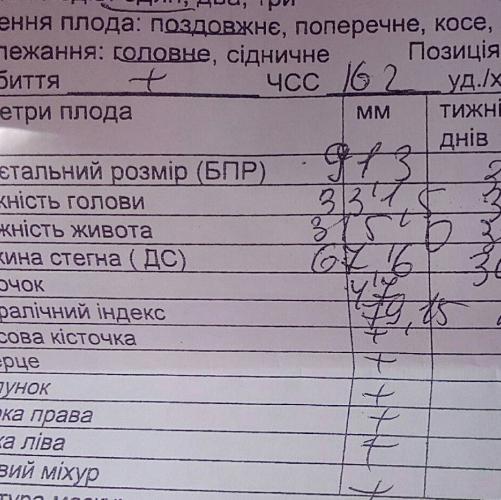 один, два, три
ення плода: поздовжнє, поперечне, косе,
лежання: головне, сідничне Позиція
биття + ЧСС 162 уд./х
етри плода мм тижні
днів
єтальний розмір (БПР) 91,3
жність голови 331,5
жність живота 315,0
жина стегна ( ДС) 67,6
очок 47
ралічний індекс 79,15
сова кісточка +
ерце +
лунок +
рка права +
ка ліва +
вий міхур +